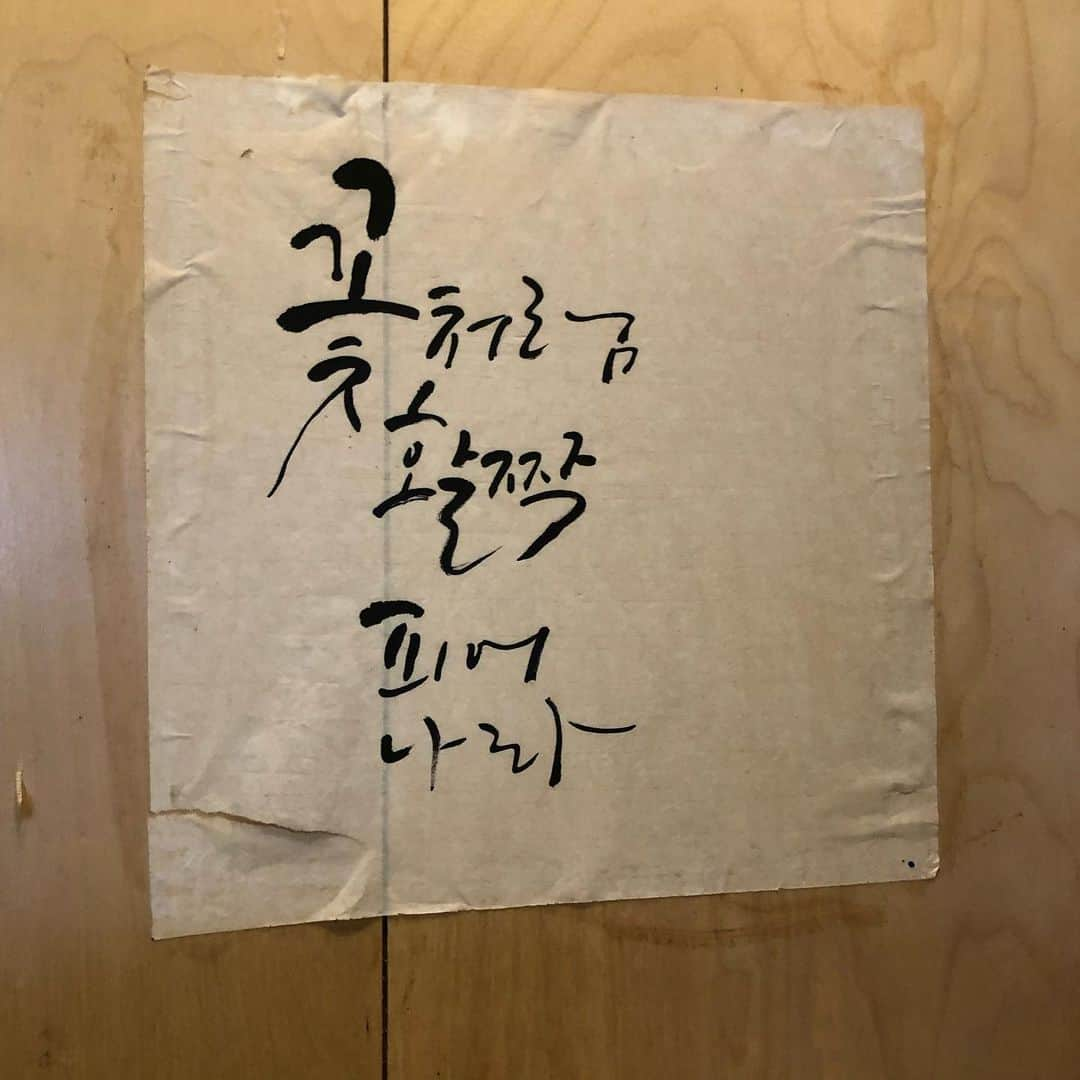 꽃처럼
활짝
피어
나라